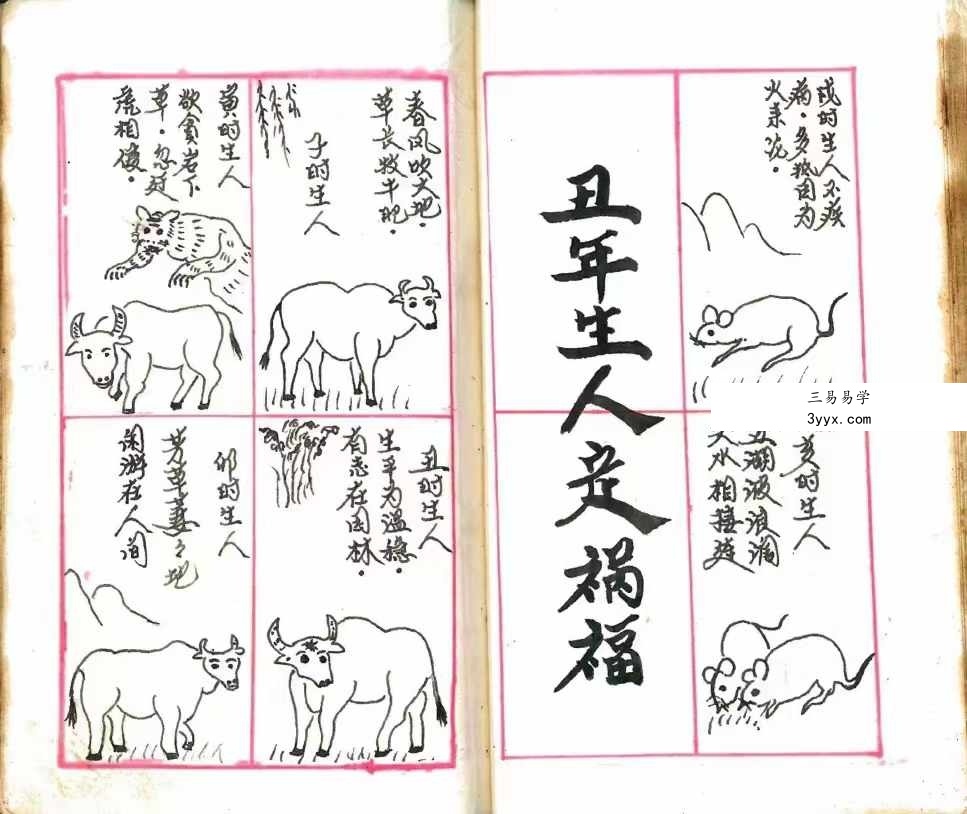 戌时生人不疾
病.多抵因为
火来
三易易学
3yyx.com
亥时生人
五湖波浪涌
天水相接连
丑年生人定祸福
春风吹大地.
草长牧牛肥.
子时生人
丑时生人
生平为温稳.
有志在园林.
寅时生人
欲贪岩下
草.忽被
虎相侵.
卯时生人
芳草萋々地
闲游在人间